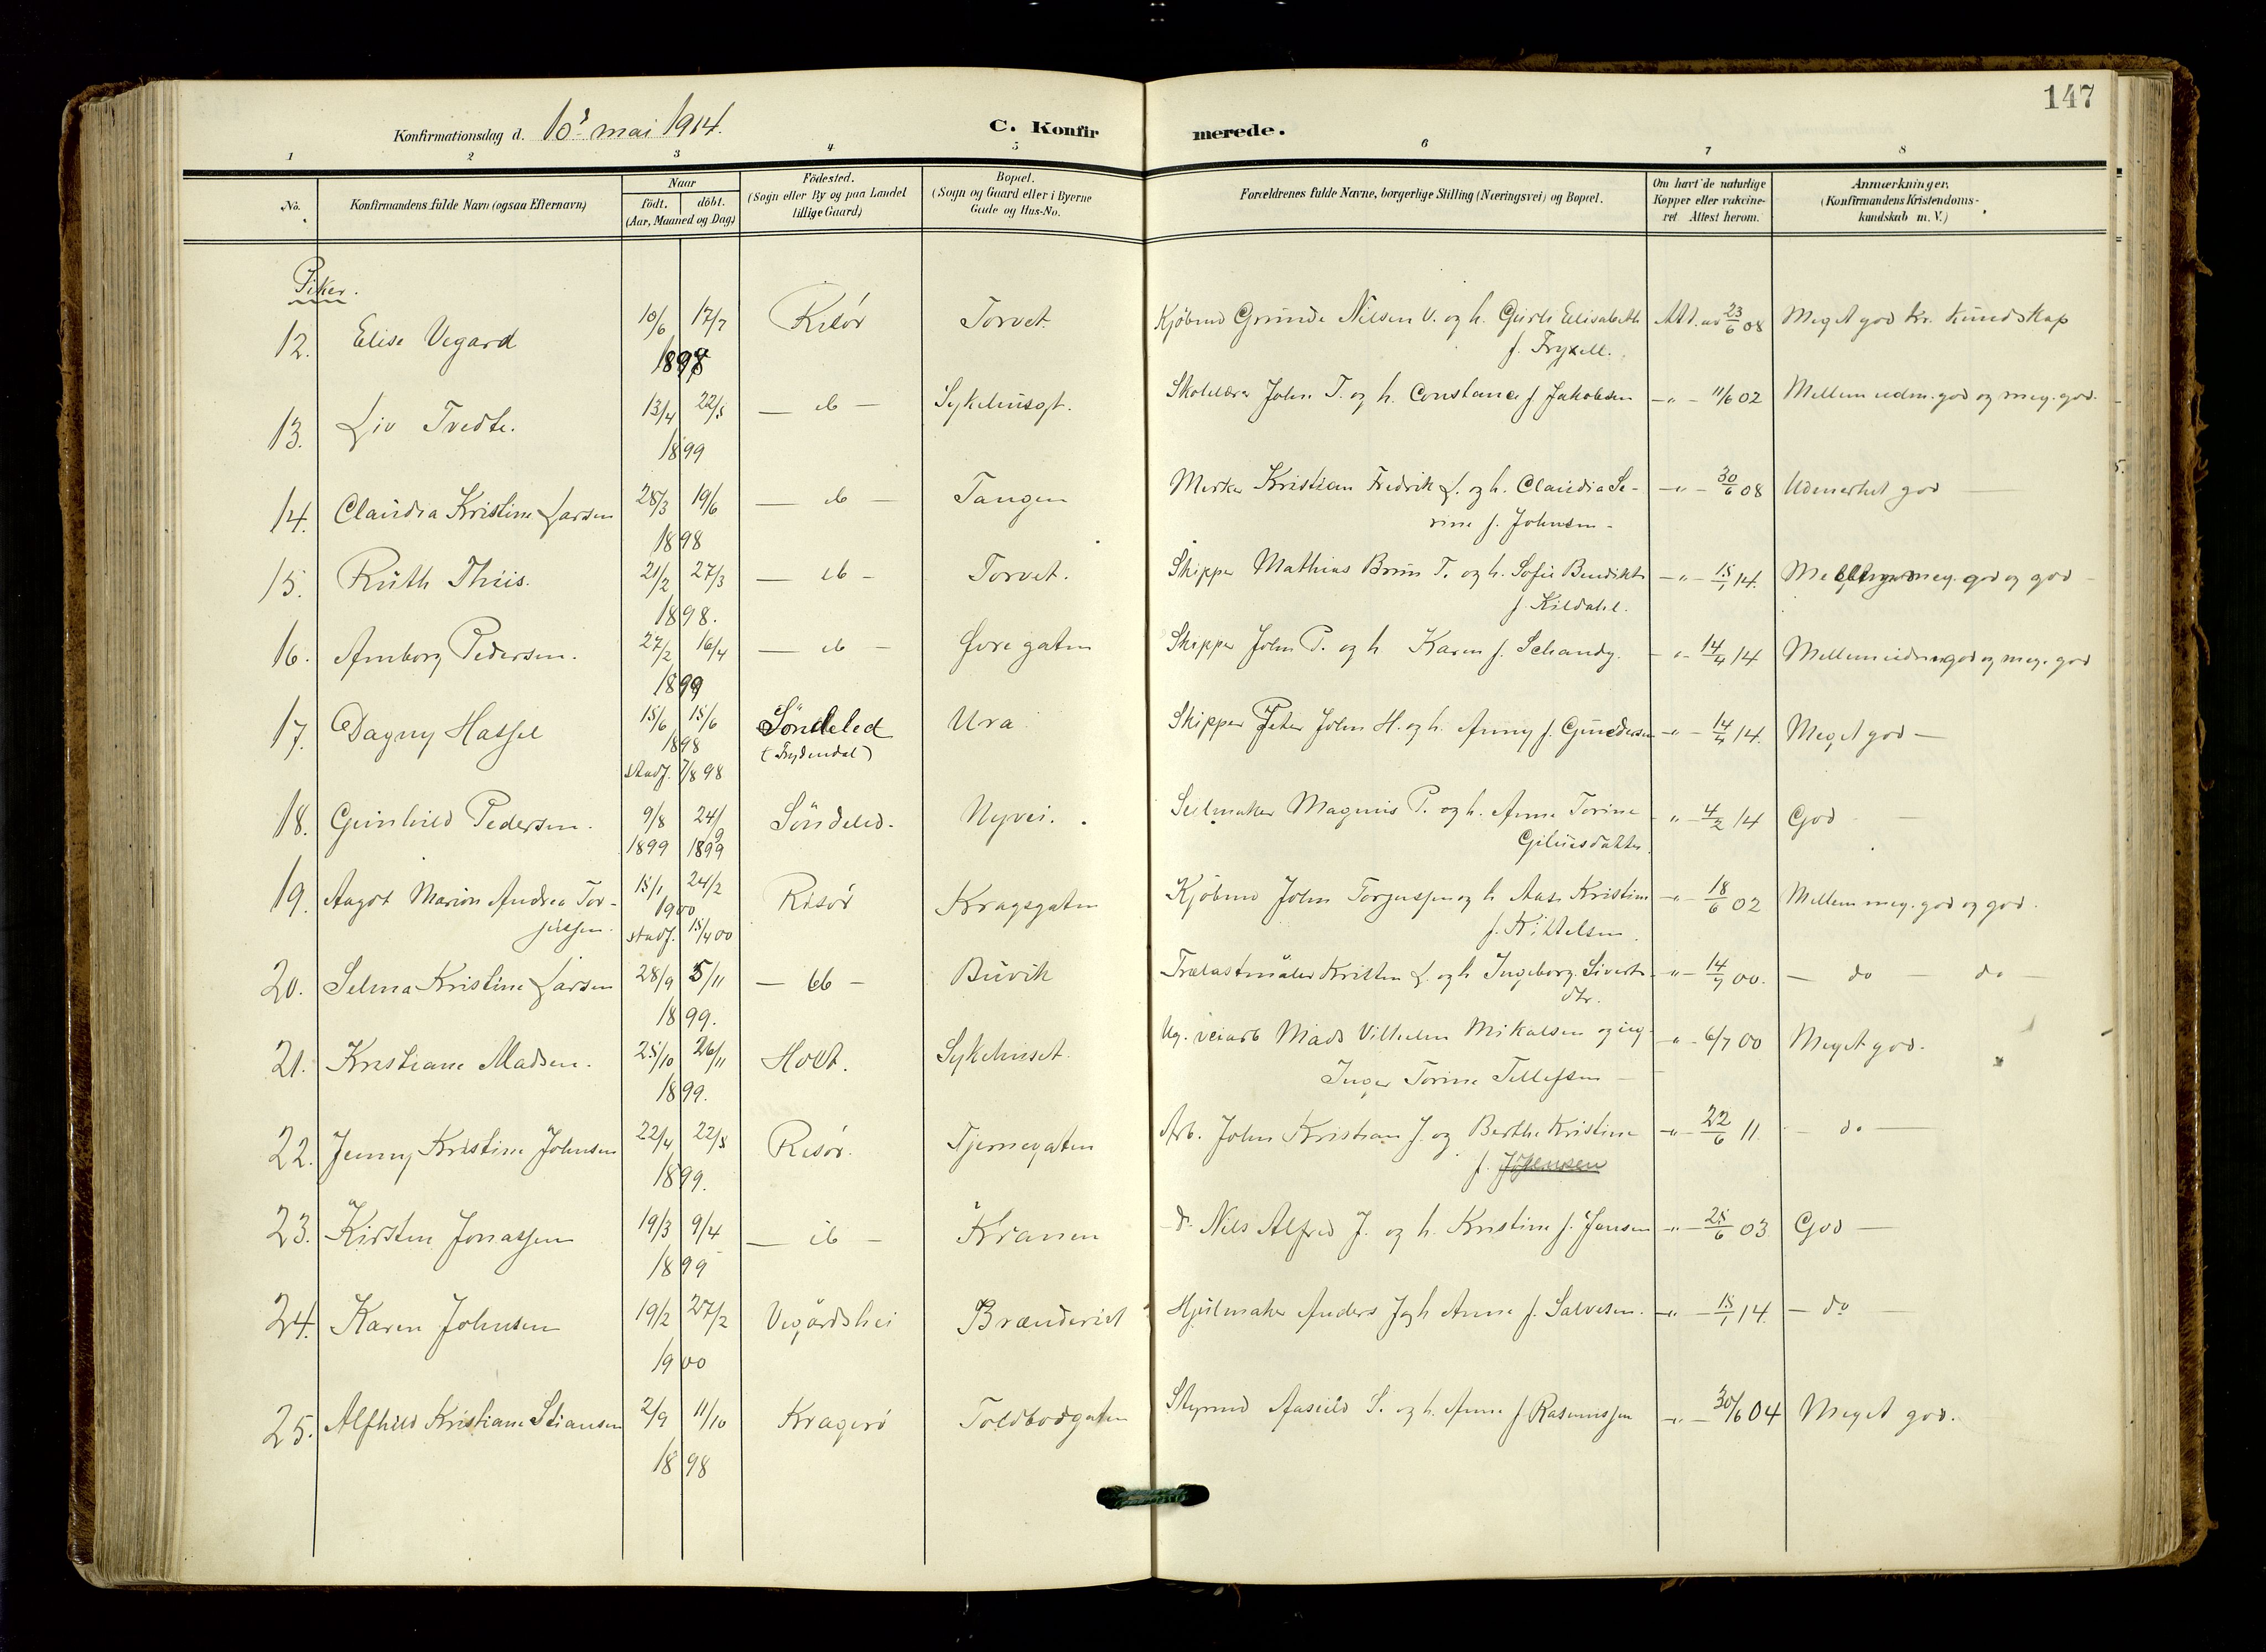 147
Konfirmationsdag d. 10' mai 1914.
C. Konfirmerede.
1 2 3 4 5 6 7 8
No.
Konfirmandens fulde Navn (ogsaa Efternavn)
Naar
födt. döbt.
(Aar, Maaned og Dag)
Födested.
(Sogn eller By og paa Landet
tillige Gaard)
Bopæl.
(Sogn og Gaard eller i Byerne
Gade og Hus-No.
Forældrenes fulde Navne, borgerlige Stilling (Næringsvei) og Bopæl.
Om havt de naturlige
Kopper eller vakcine-
ret Attest herom.
Anmærkninger.
(Konfirmandens Kristendoms-
kundskab m. V.)
Piker.
12. Elise Vegard 10/6 17/7 Risör Torvet. Kjöbmd Grunde Nilsen V. og h. Elisabeth Att. av 23/6 08 Meget god kr. kundskap
1898 f. Fryxell.
13. Liv Tvedte. 13/4 22/5 — ib — Sykehusgt. Skolelærer John T. og h. Constance f Jakobsen — " — 11/6 02 Mellem udm. god og meg. god.
1899
14. Claudia Kristine Larsen 28/3 19/6 — ib — Tangen Merker Kristian Fredrik L. og h. Claudia Se- — " — 30/6 08 Udmerket god —
1898 rine f. Johnsen -
15. Ruth Thiis. 21/2 27/3 — ib — Torvet. Skipper Mathias Brun T. og h. Sofie Bendikte — " — 15/1 14. meg. god og god —
1898. f. Kildahl.
16. Arnborg Pedersen. 27/2 16/4 — ib — Øvregaten Skipper John P. og h Karen f. Schandy. — " — 14/4 14 Mellem udm god og meg. god
1899
17. Dagny Hassel 15/6 15/6 Söndeled Ura Skipper Peter John H. og h. Anny f. Gundersen — " — 14/4 14. Meget god —
1898 (Frydendal)
stadf. 7/8 98
18. Gunhild Pedersen. 9/8 24/9 Söndeled. Nyvei. Seilmaker Magnus P. og h. Anne Torine " — 4/2 14 God —
1899 1899
19. Aagot Marion Andrea Tor- 15/1 24/2 Risör Kragsgaten Kjöbmd John Torjussen og h Aase Kristine — " — 18/6 02 Mellem meg. god og god.
jussen. 1900 f. Kittelsen.
stadf. 15/4 00
20. Selma Kristine Larsen 28/9 5/11 — ib — Buvik Trælastmåler Kristen L. og h Ingeborg Siverts- — " — 14/7 00. — do — do —
1899. dtr.
21. Kristiane Madsen. 25/10 26/11 Holt. Sykehuset. Ug. veiarb Mads Vilhelm Mikalsen og ug. — " — 6/7 00 Meget god.
1899. Inger Torine Tellefsen —
22. Jenny Kristine Johnsen 22/4 22/5 Risör. Tjernegaten Arb. John Kristian J. og Berthe Kristine — " — 22/6 11. — do —
1899. f.
23. Kirsten Jonassen 19/3 9/4 — ib — Kranen d. Nils Alfred J. og h. Kristine f. Jensen — " — 25/6 03 God —
1899
24. Karen Johnsen 19/2 27/2 Vegårdshei Brænderiet Hjulmaker Anders J og h Anne f. Salvesen. — " — 15/1 14. — do —
1900
25. Alfhild Kristiane Stiansen 2/9 11/10 Kragerö Toldbodgaten Styrmd S. og h. Anne f Rasmussen — " — 30/6 04 Meget god.
1898